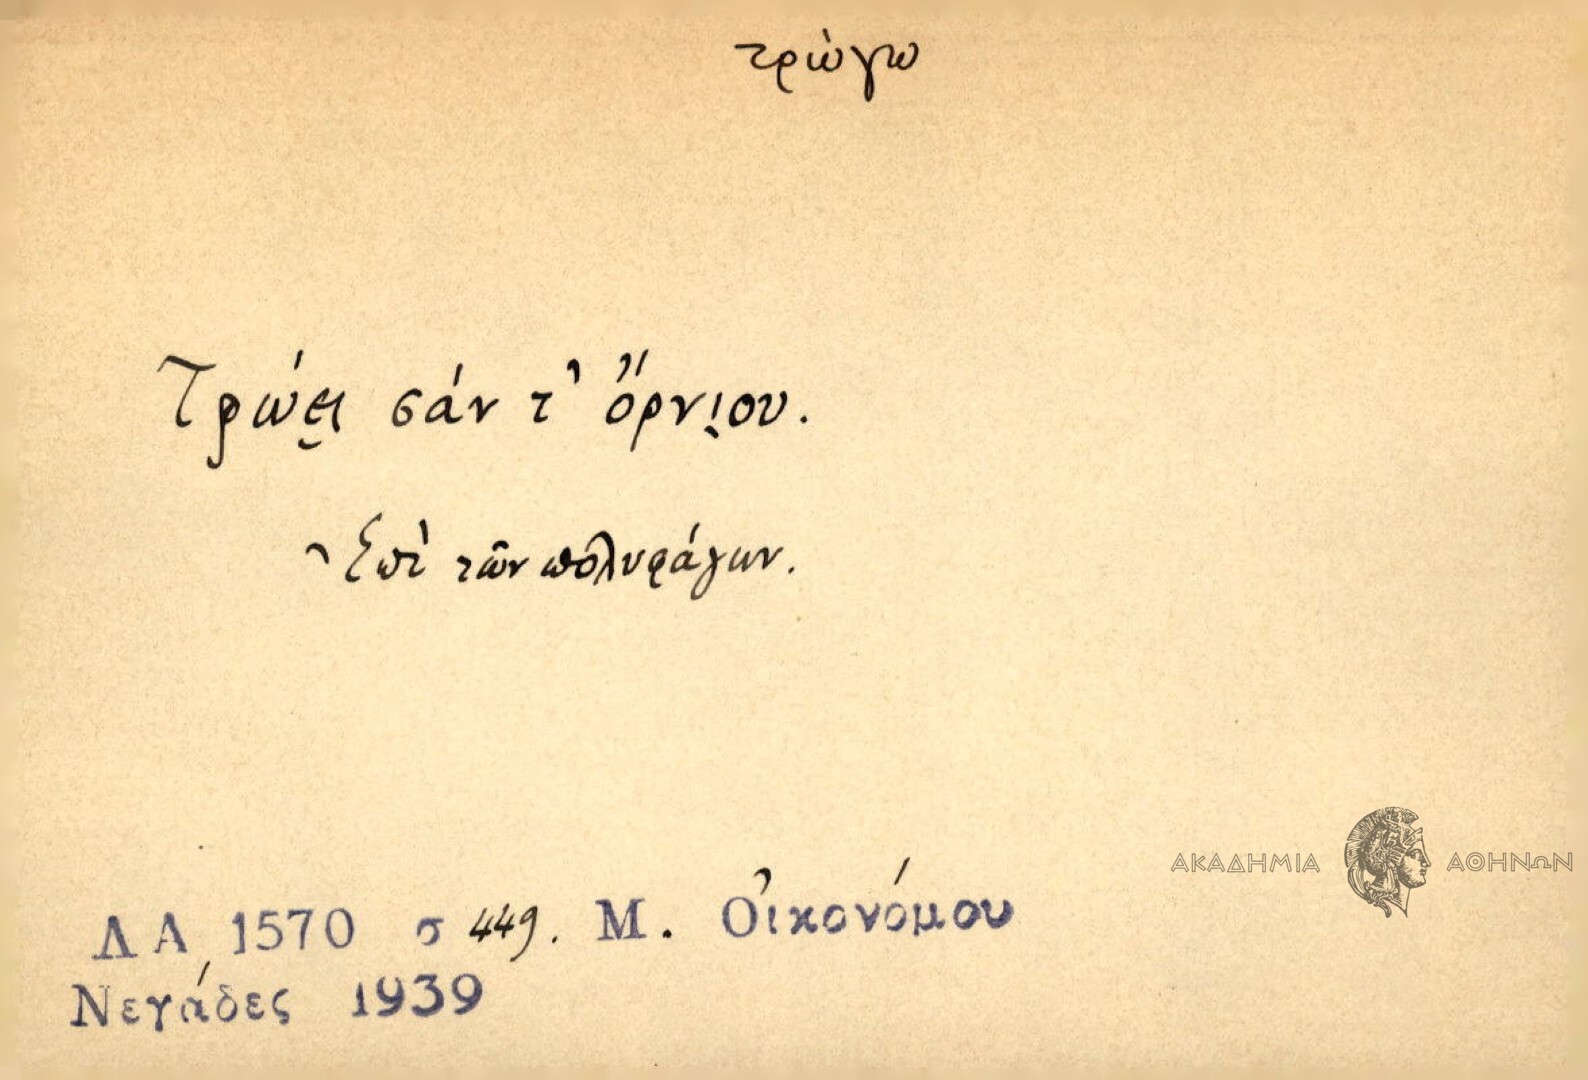 τρώγω
Τρώει̮ σάν τ' ὄρνι̮ου.
Ἐπὶ τῶν πολυφάγων.
ΑΚΑΔΗΜΙΑ ΑΘΗΝΩΝ
ΛΑ 1570 σ 449. Μ. Οἰκονόμου
Νεγάδες 1939